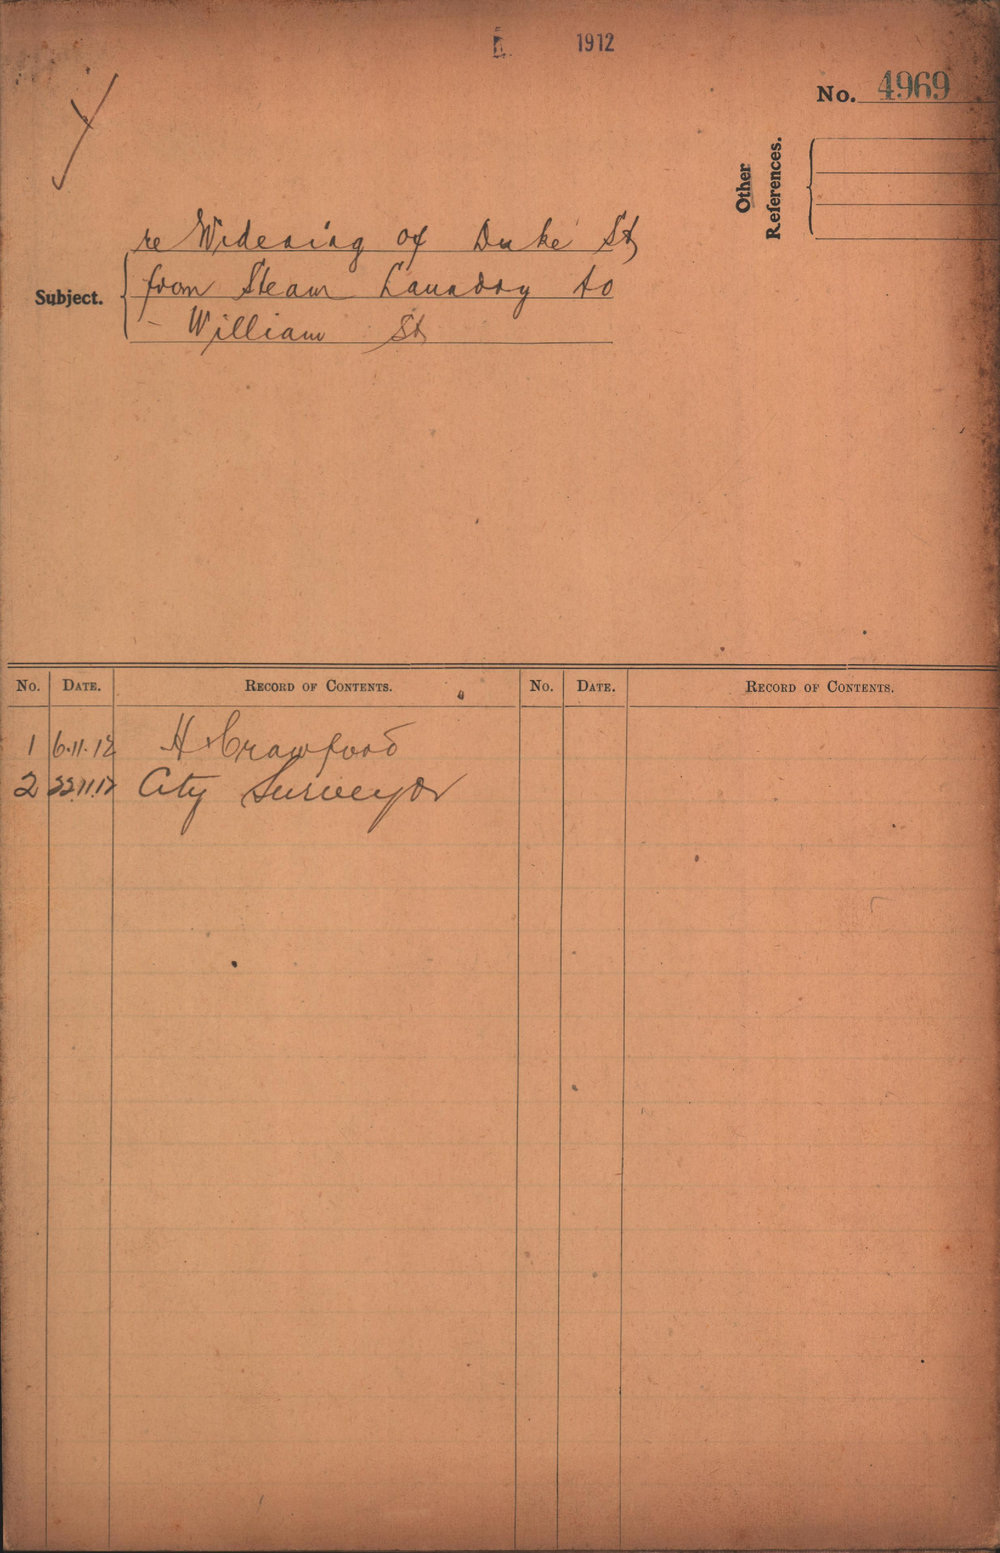 1912
No. 4969
Other
References.
Subject.
re Widening of Duke St
from Steam Laundry to
- William St
No. DATE. RECORD OF CONTENTS. No. DATE. RECORD OF CONTENTS.
1 6.11.12 H Crawford
2 22.11.12 City Surveyor